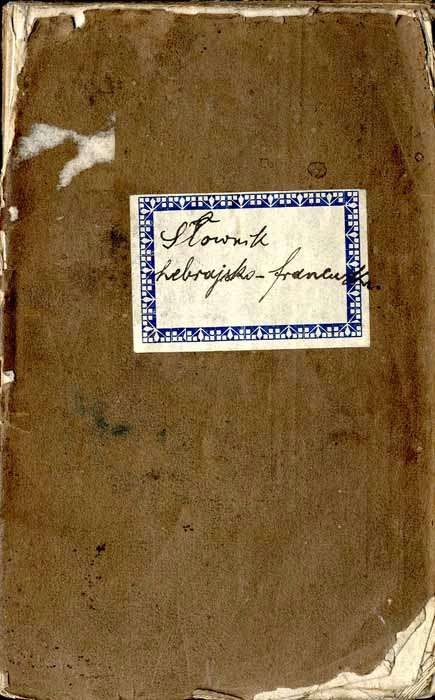 Słownik
hebrajsko-francuski.